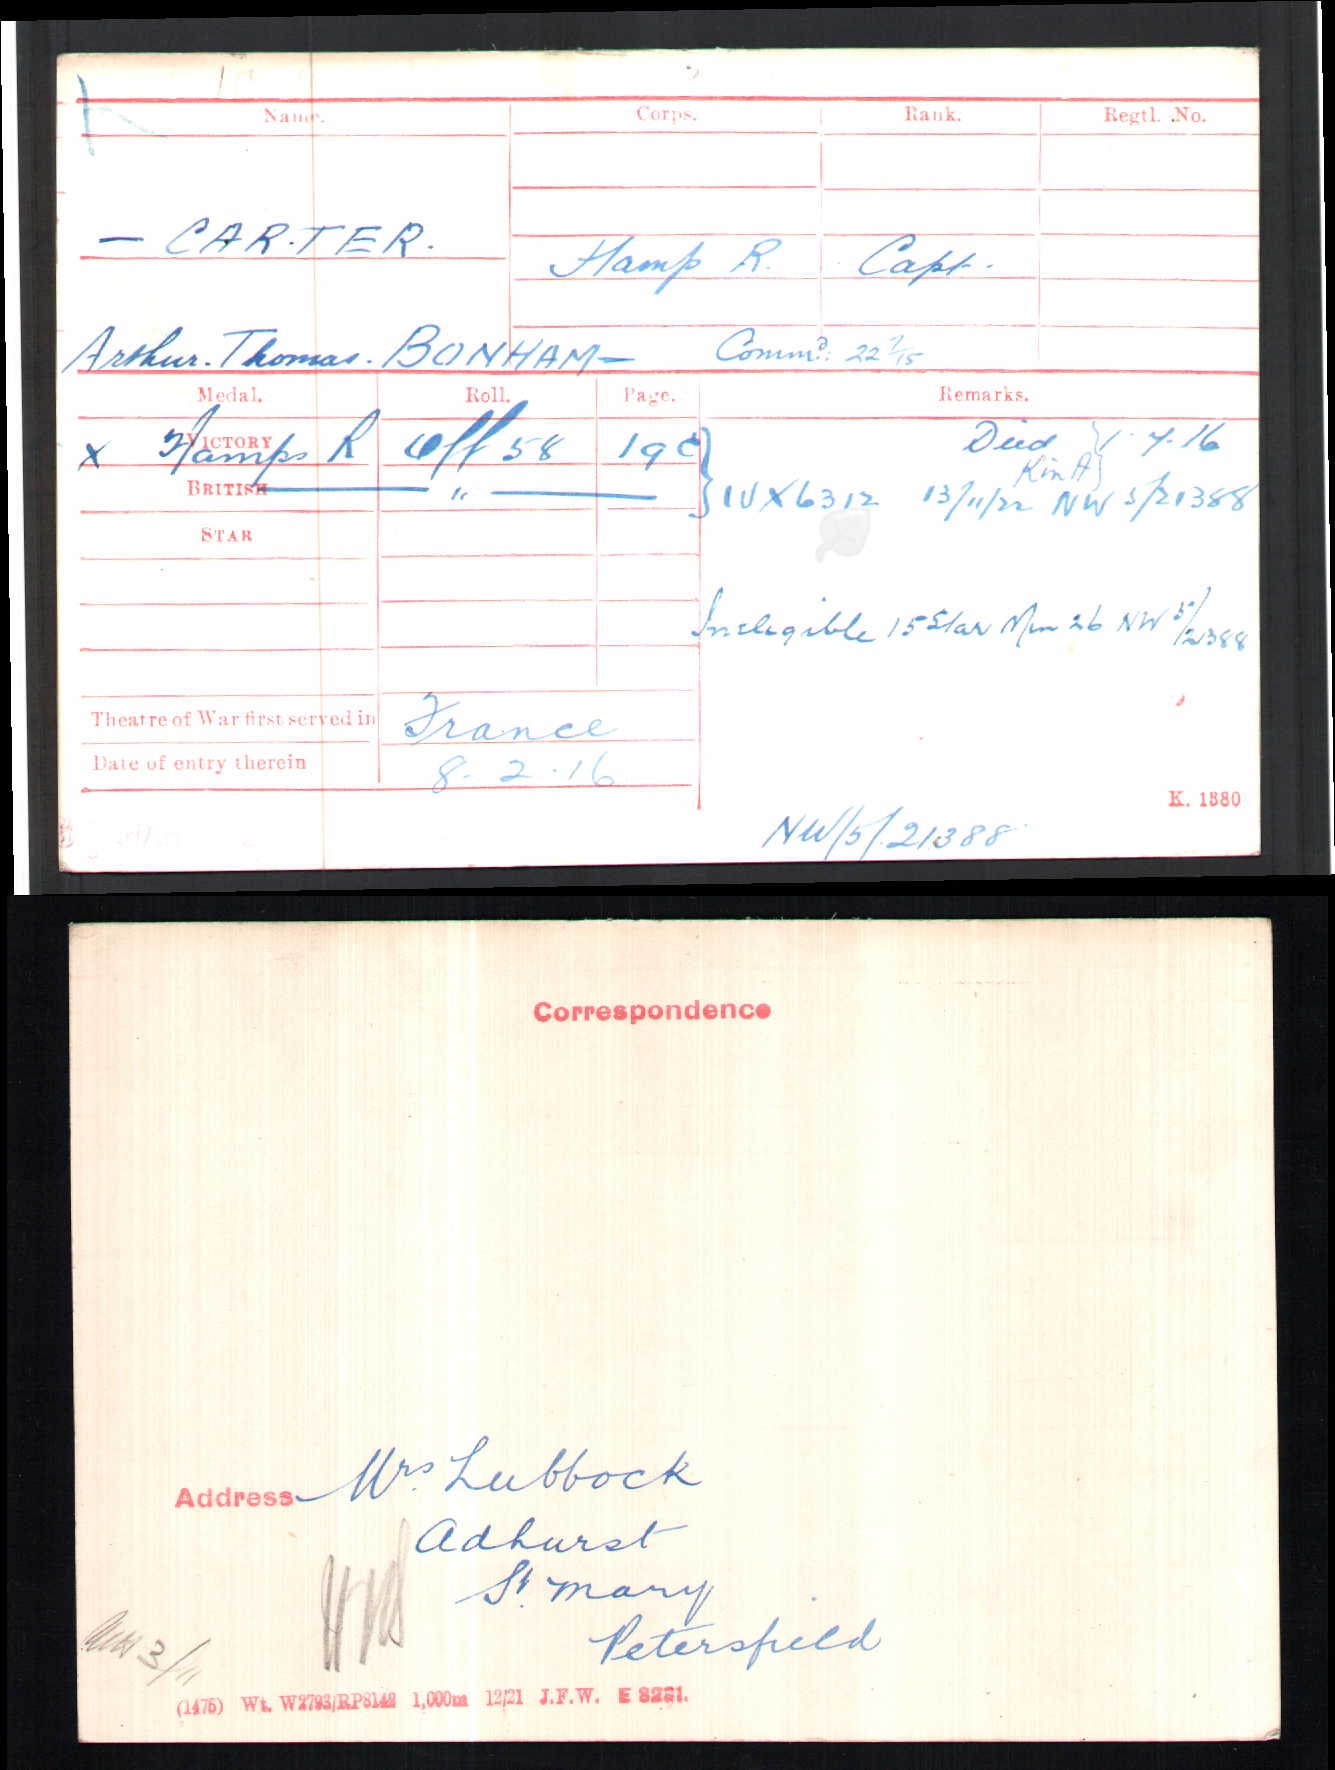 Name. Corps. Rank. Regtl. No.
— CARTER.
Hamp R. Capt.
Arthur. Thomas. BONHAM— Commd: 22 7/15
Medal. Roll. Page. Remarks.
VICTORY
x Hamps R Off 58 19c Died 1.7.16
K in A
BRITISH — " — IVX6312 13/11/22 NW 5/21388
STAR
Inelegible 15 Star Min 26 NW 5/21388
Theatre of War first served in France
Date of entry therein 8. 2. 16
K. 1380
NW/5/21388
Correspondence
Address Mrs. Lubbock
Adhurst
St. Mary
Petersfield
3/11
(1475) Wt. W2793/RP8142 1,000m 12/21 J.F.W. E 8221.